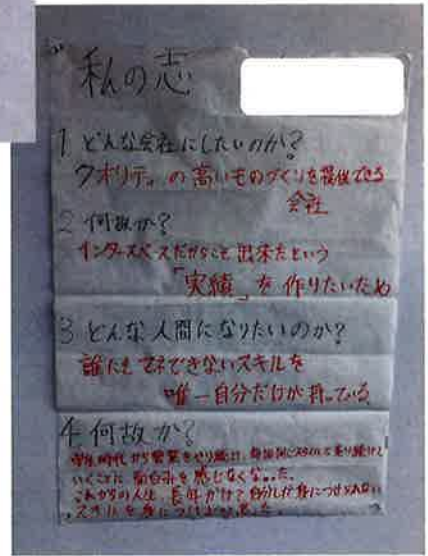 私の志
1 どんな会社にしたいのか?
クオリティの高いものづくりを提供できる
会社
2 何故か?
インタースペースだからこそ出来たという
「実績」を作りたいため
3 どんな人間になりたいのか?
誰にもマネできないスキルを
唯一自分だけが持っている
4 何故か?
学生時代から営業をやり続け、毎回同じスタイルで売り続けて
いくことに面白みを感じなくなった。
これからの人生、長年かけて自分しか身につけられない
スキルを身につけ